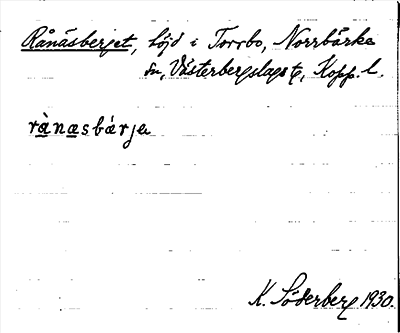 Rånäsberget, höjd i Torrbo, Norrbärke
sn, Västerbergslags t, Kopp. l.
rånasbärje
K. Söderberg 1930.